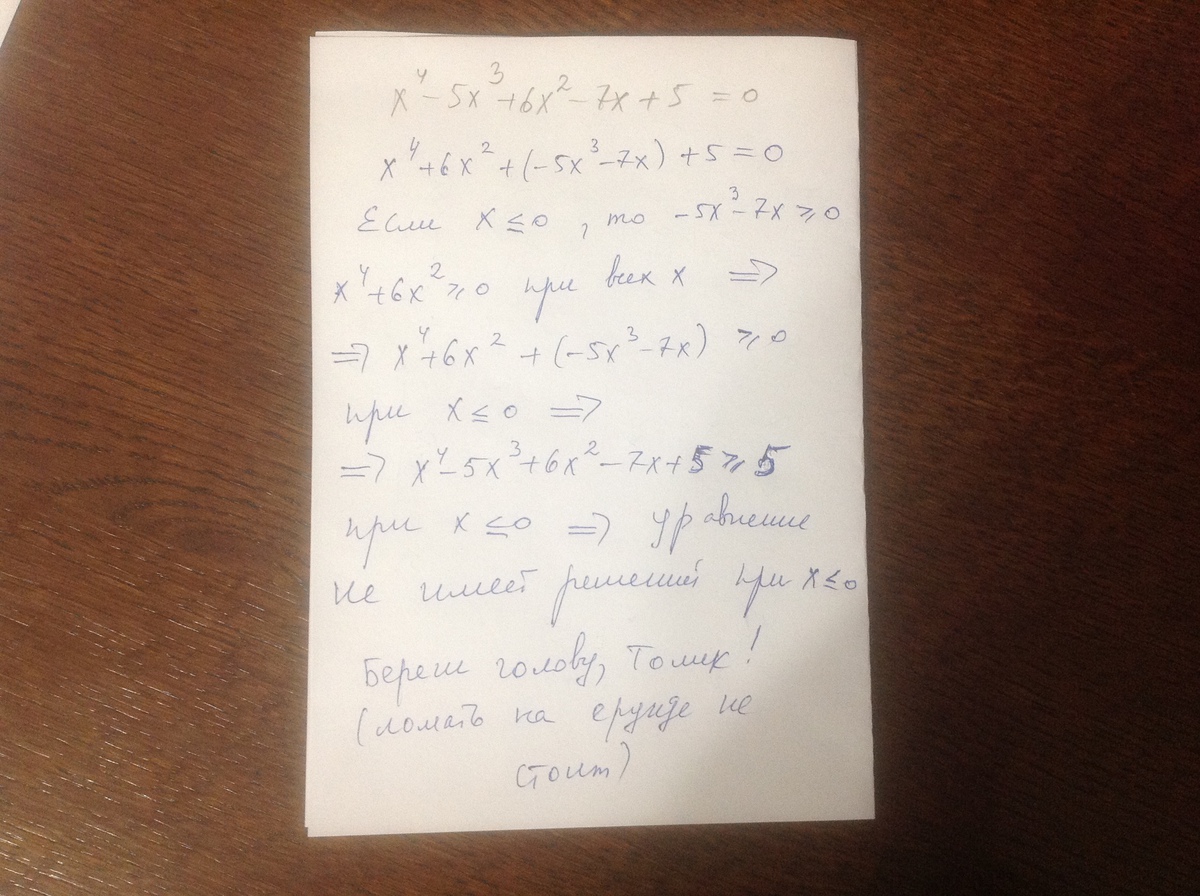 x⁴ - 5x³ + 6x² - 7x + 5 = 0
x⁴ + 6x² + (-5x³ - 7x) + 5 = 0
Если x ≤ 0, то -5x³ - 7x ≥ 0
x⁴ + 6x² ≥ 0 при всех x ⇒
⇒ x⁴ + 6x² + (-5x³ - 7x) ≥ 0
при x ≤ 0 ⇒
⇒ x⁴ - 5x³ + 6x² - 7x + 5 ≥ 5
при x ≤ 0 ⇒ уравнение
не имеет решений при x ≤ 0
Береги голову, Томик!
(ломать на ерунде не
стоит)